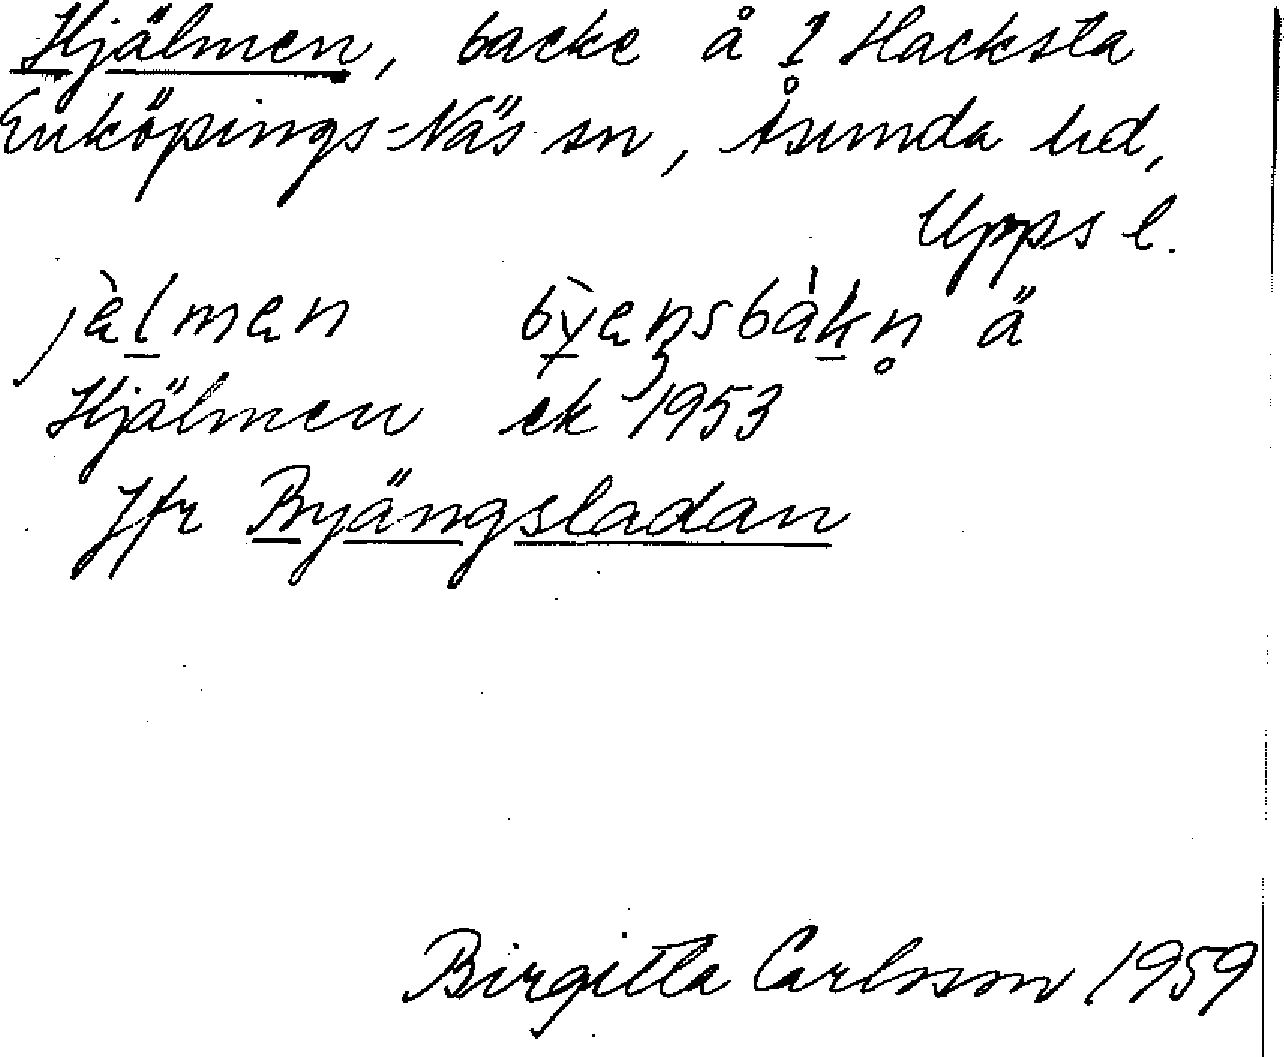 Hjälmen, backe å 2 Hacksta
Enköpings-Näs sn, Åsunda hd,
Upps l.
jèlmen bỳeŋsbàkn̥ ä
Hjälmen ek 1953
Jfr Byängsladan
Birgitta Carlsson 1959